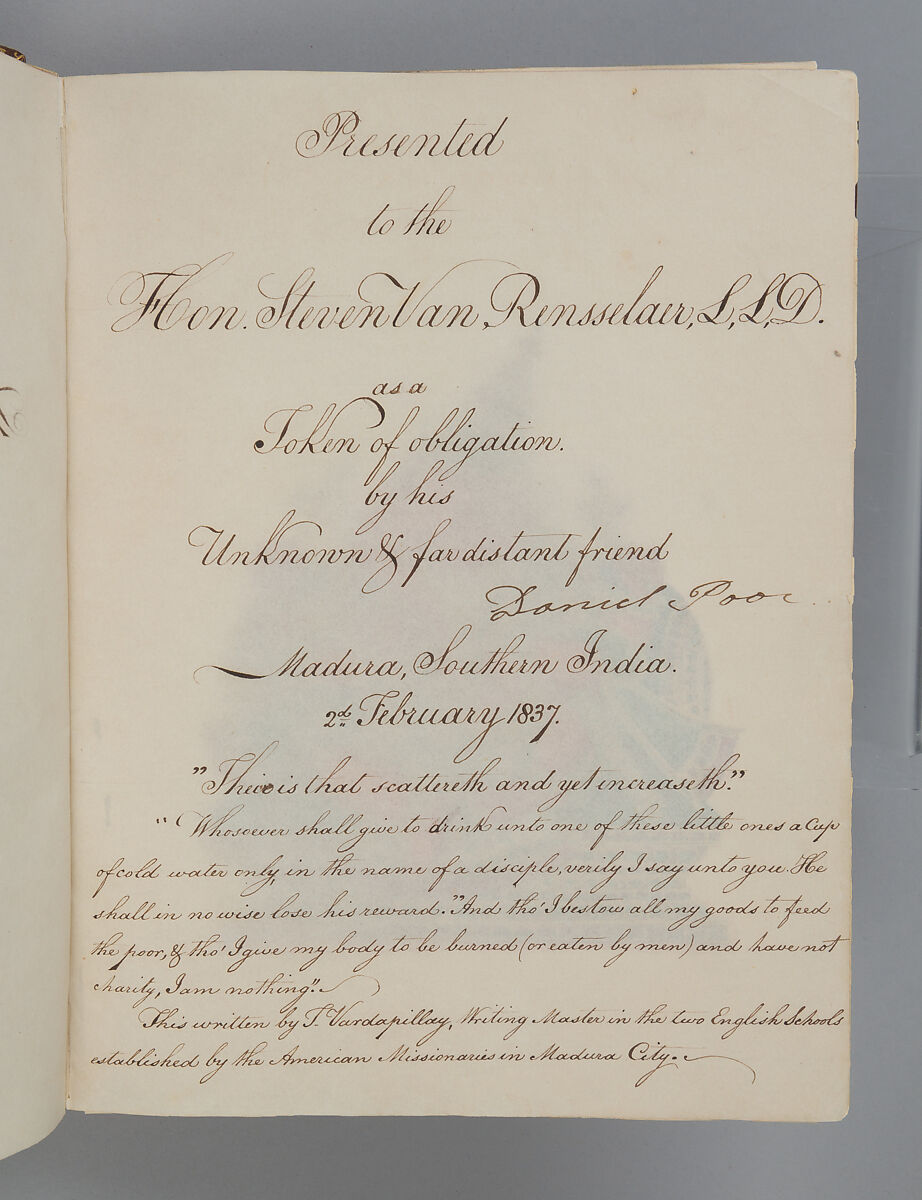 Presented
to the
Hon. Steven Van Rensselaer, L, L, D.
as a
Token of obligation.
by his
Unknown & far distant friend
Daniel Poor
Madura, Southern India.
2d. February 1837.
"There is that scattereth and yet increaseth."
"Whosoever shall give to drink unto one of these little ones a Cup
of cold water only, in the name of a disciple, verily I say unto you. He
shall in no wise lose his reward." And tho' I bestow all my goods to feed
the poor, & tho' I give my body to be burned (or eaten by men) and have not
charity, I am nothing".
This written by T. Vardapillay, Writing Master in the two English Schools
established by the American Missionaries in Madura City.